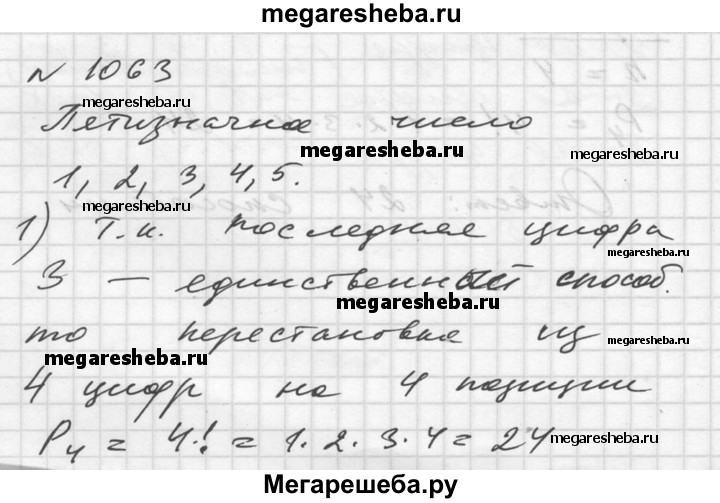 megaresheba.ru
№ 1063
megaresheba.ru
Пятизначное число
megaresheba.ru
megaresheba.ru
1, 2, 3, 4, 5.
megaresheba.ru
1) Т.к. последняя цифра
3 — единственный способ.
megaresheba.ru
то перестановка из
megaresheba.ru
megaresheba.ru
4 цифр на 4 позиции
P₄ = 4! = 1·2·3·4 = 24
megaresheba.ru
Мегарешеба.ру